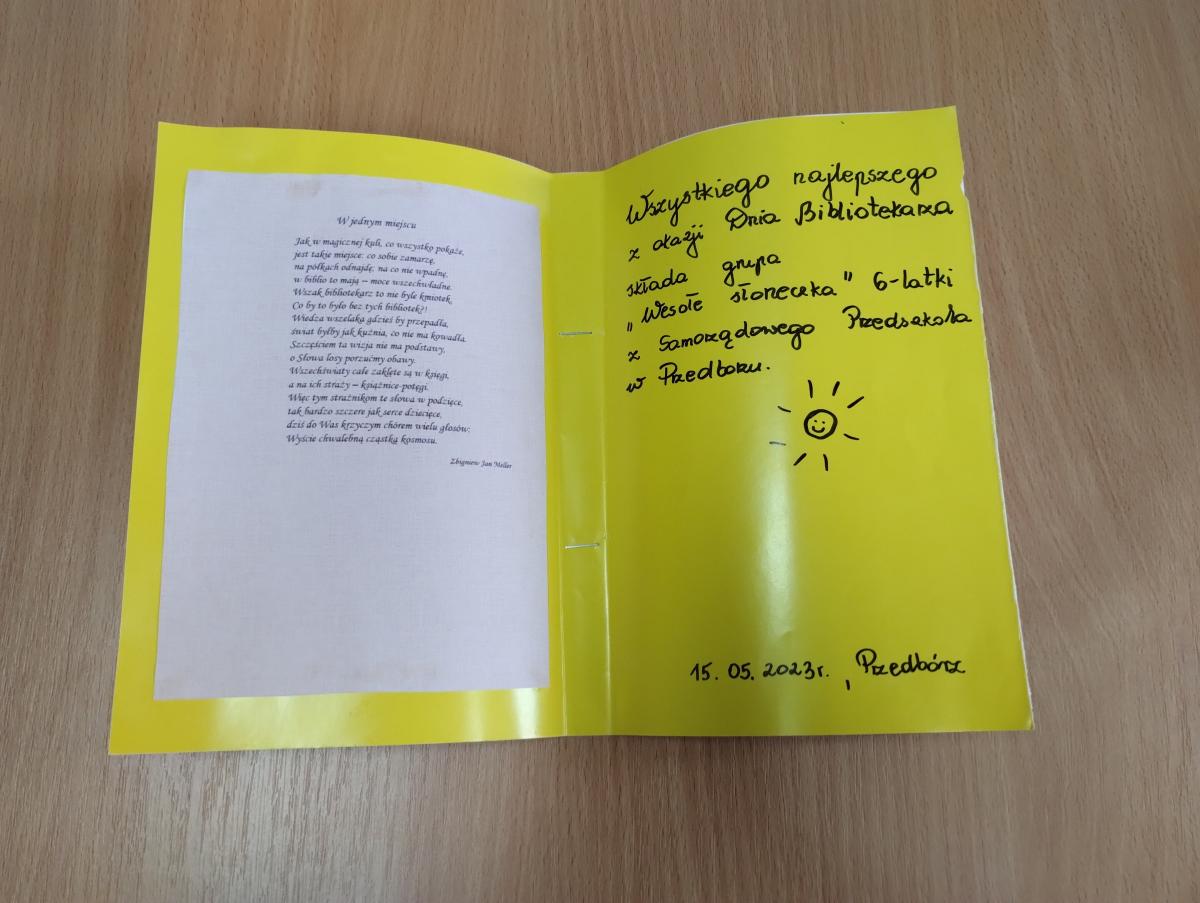 W jednym miejscu
Jak w magicznej kuli, co wszystko pokaże,
jest takie miejsce: co sobie zamarzę,
na półkach odnajdę; na co nie wpadnę,
w biblio to mają – moce wszechwładne.
Wszak bibliotekarz to nie byle kmiotek,
Co by to było bez tych bibliotek?!
Wiedza wszelaka gdzieś by przepadła,
świat byłby jak kuźnia, co nie ma kowadła.
Szczęściem ta wizja nie ma podstawy,
o Słowa losy porzućmy obawy.
Wszechświaty całe zaklęte są w księgi,
a na ich straży – książnice-potęgi.
Więc tym strażnikom te słowa w podzięce,
tak bardzo szczere jak serce dziecięce,
dziś do Was krzyczym chórem wielu głosów:
Wyście chwalebną cząstką kosmosu.
Zbigniew Jan Meller
Wszystkiego najlepszego
z okazji Dnia Bibliotekarza
składa grupa
"Wesołe słoneczka" 6-latki
z Samorządowego Przedszkola
w Przedborzu.
15.05.2023r., Przedbórz